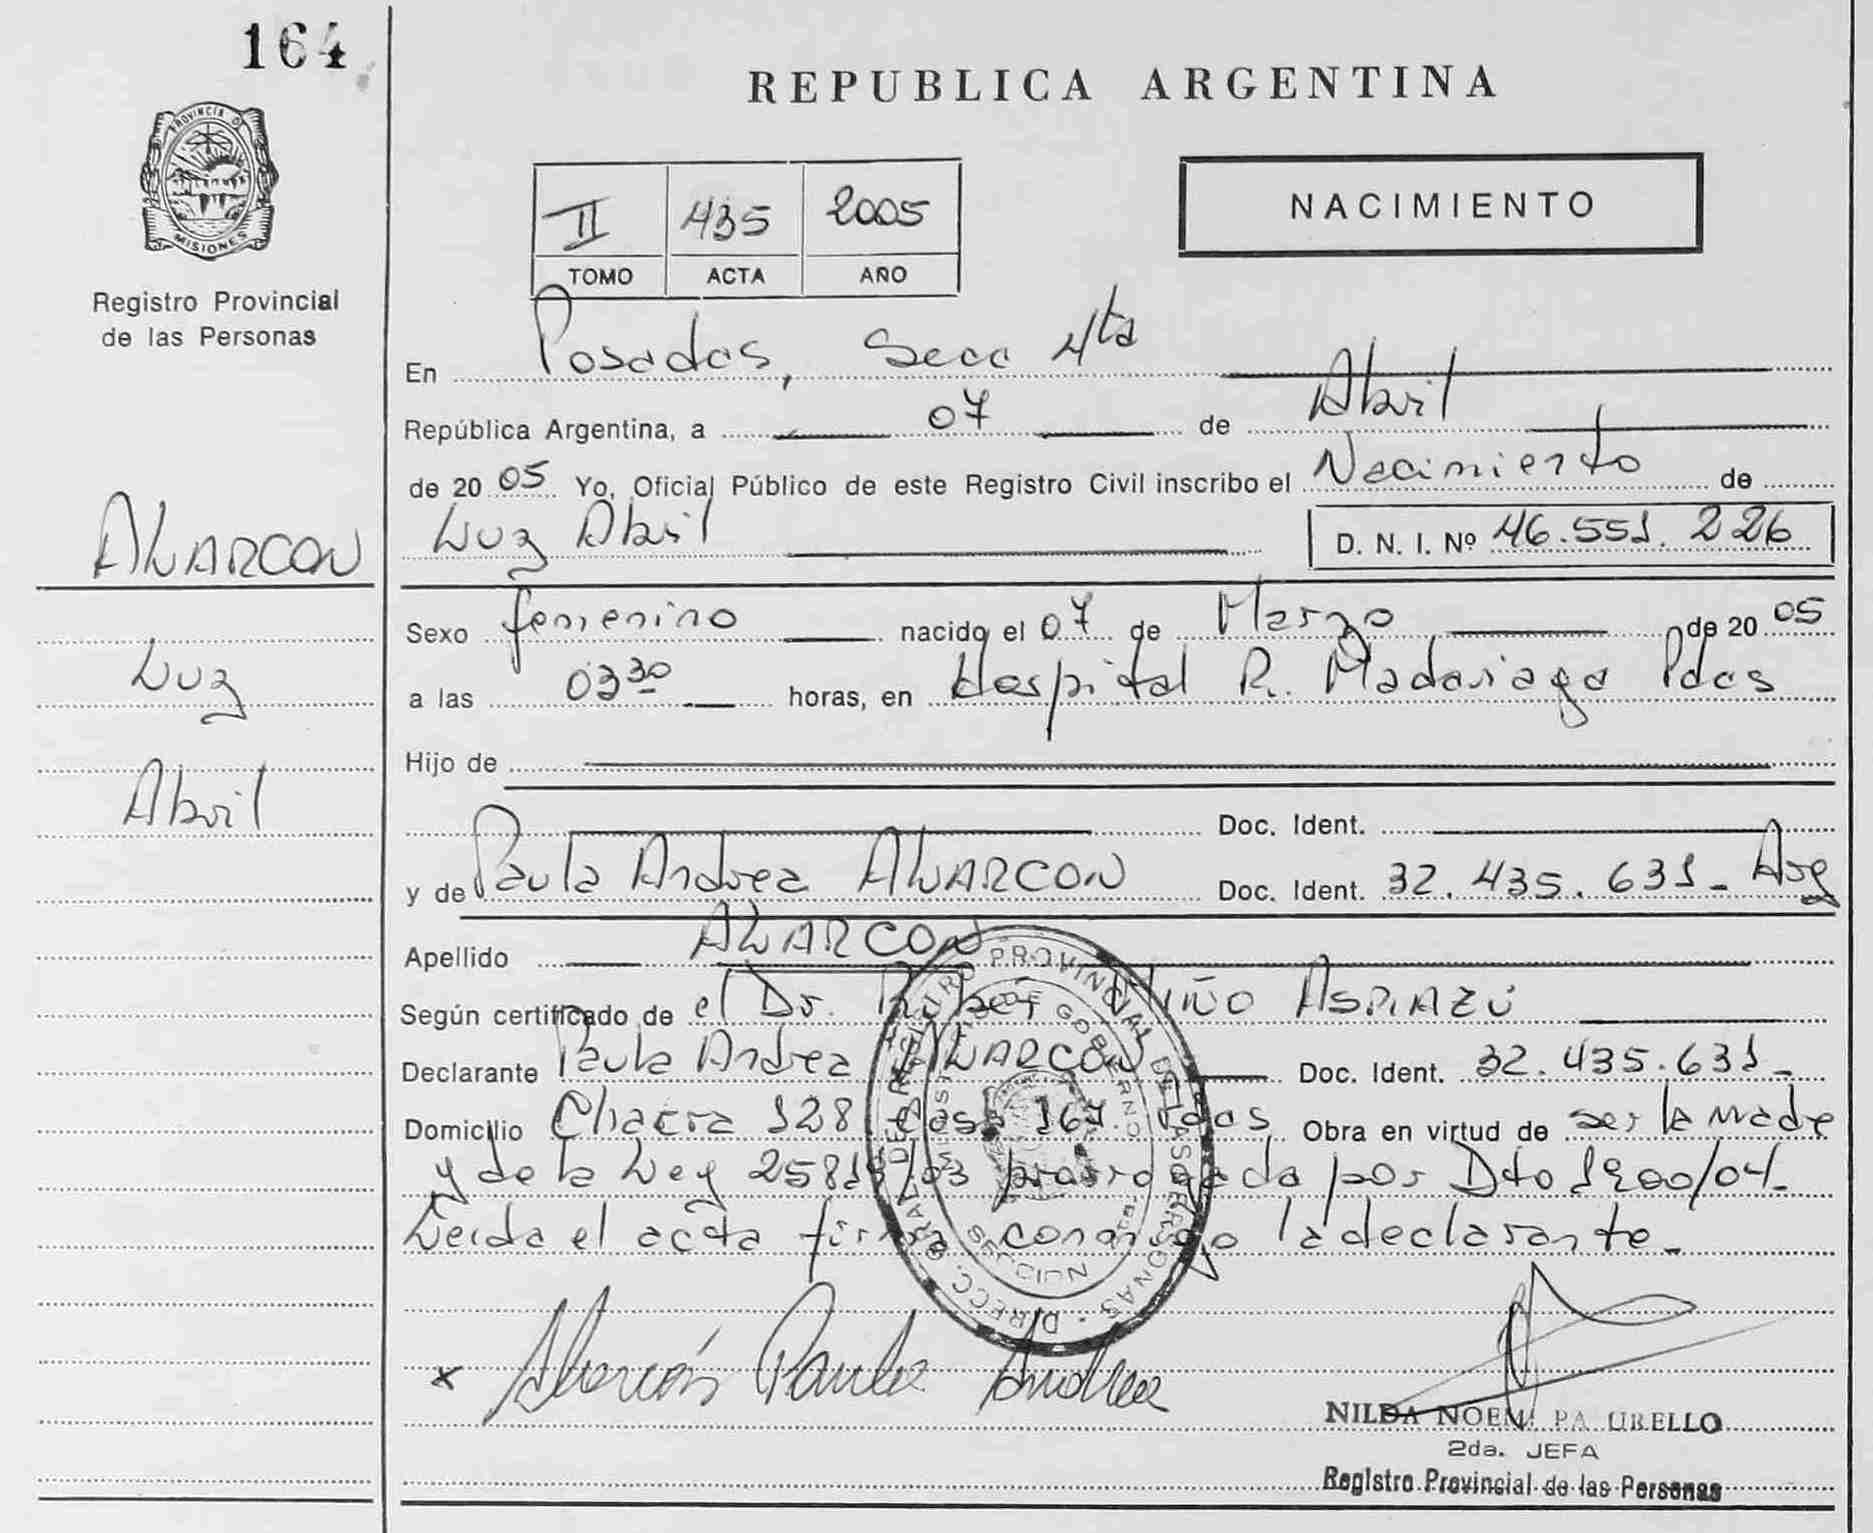 164
PROVINCIA D
MISIONES
Registro Provincial
de las Personas
ALARCON
Luz
Abril
REPUBLICA ARGENTINA
II 435 2005
TOMO ACTA AÑO
NACIMIENTO
En Posadas, Secc 4ta
República Argentina, a 07 de Abril
de 20 05 Yo, Oficial Público de este Registro Civil inscribo el Nacimiento de
Luz Abril D. N. I. Nº 46.551.226
Sexo femenino nacido el 07 de Marzo de 20 05
a las 03 30 horas, en Hospital R. Madariaga Pdas
Hijo de
Doc. Ident.
y de Paula Andrea ALARCON Doc. Ident. 32.435.631 - Arg
Apellido ALARCON
Según certificado de el Dr. Rubén NIÑO ASPIAZÚ
Declarante Paula Andrea ALARCON Doc. Ident. 32.435.631 -
Domicilio Chacra 128 Casa 167. Pdas Obra en virtud de ser la madre
y de la Ley 25819/03 prorrogada por Dto 1900/04-
Leida el acta firma conmigo la declarante.-
DIRECC. GRAL. DEL REGISTRO PROVINCIAL DE LAS PERSONAS
GOBIERNO
SECCION
x Alarcón Paula Andrea
NILDA NOEMI
2da. JEFA
Registro Provincial de las Personas